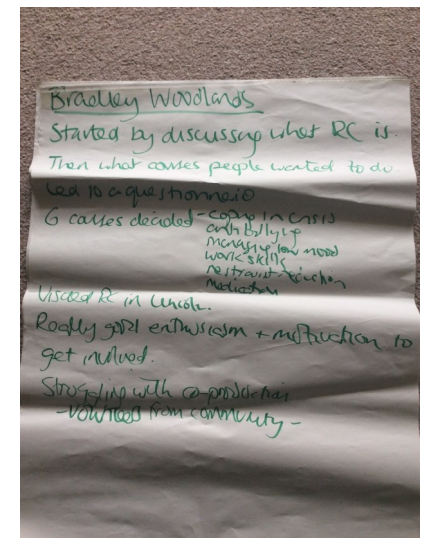 Bradley Woodlands
Started by discussing what RC is.
Then what courses people wanted to do
Led to a questionnaire
6 courses decided - coping in crisis
anti bullying
managing low mood
work skills
restraint reduction
medication
Visited RC in Lincoln.
Really good enthusiasm + motivation to
get involved.
Struggling with co-production
- volunteers from community -